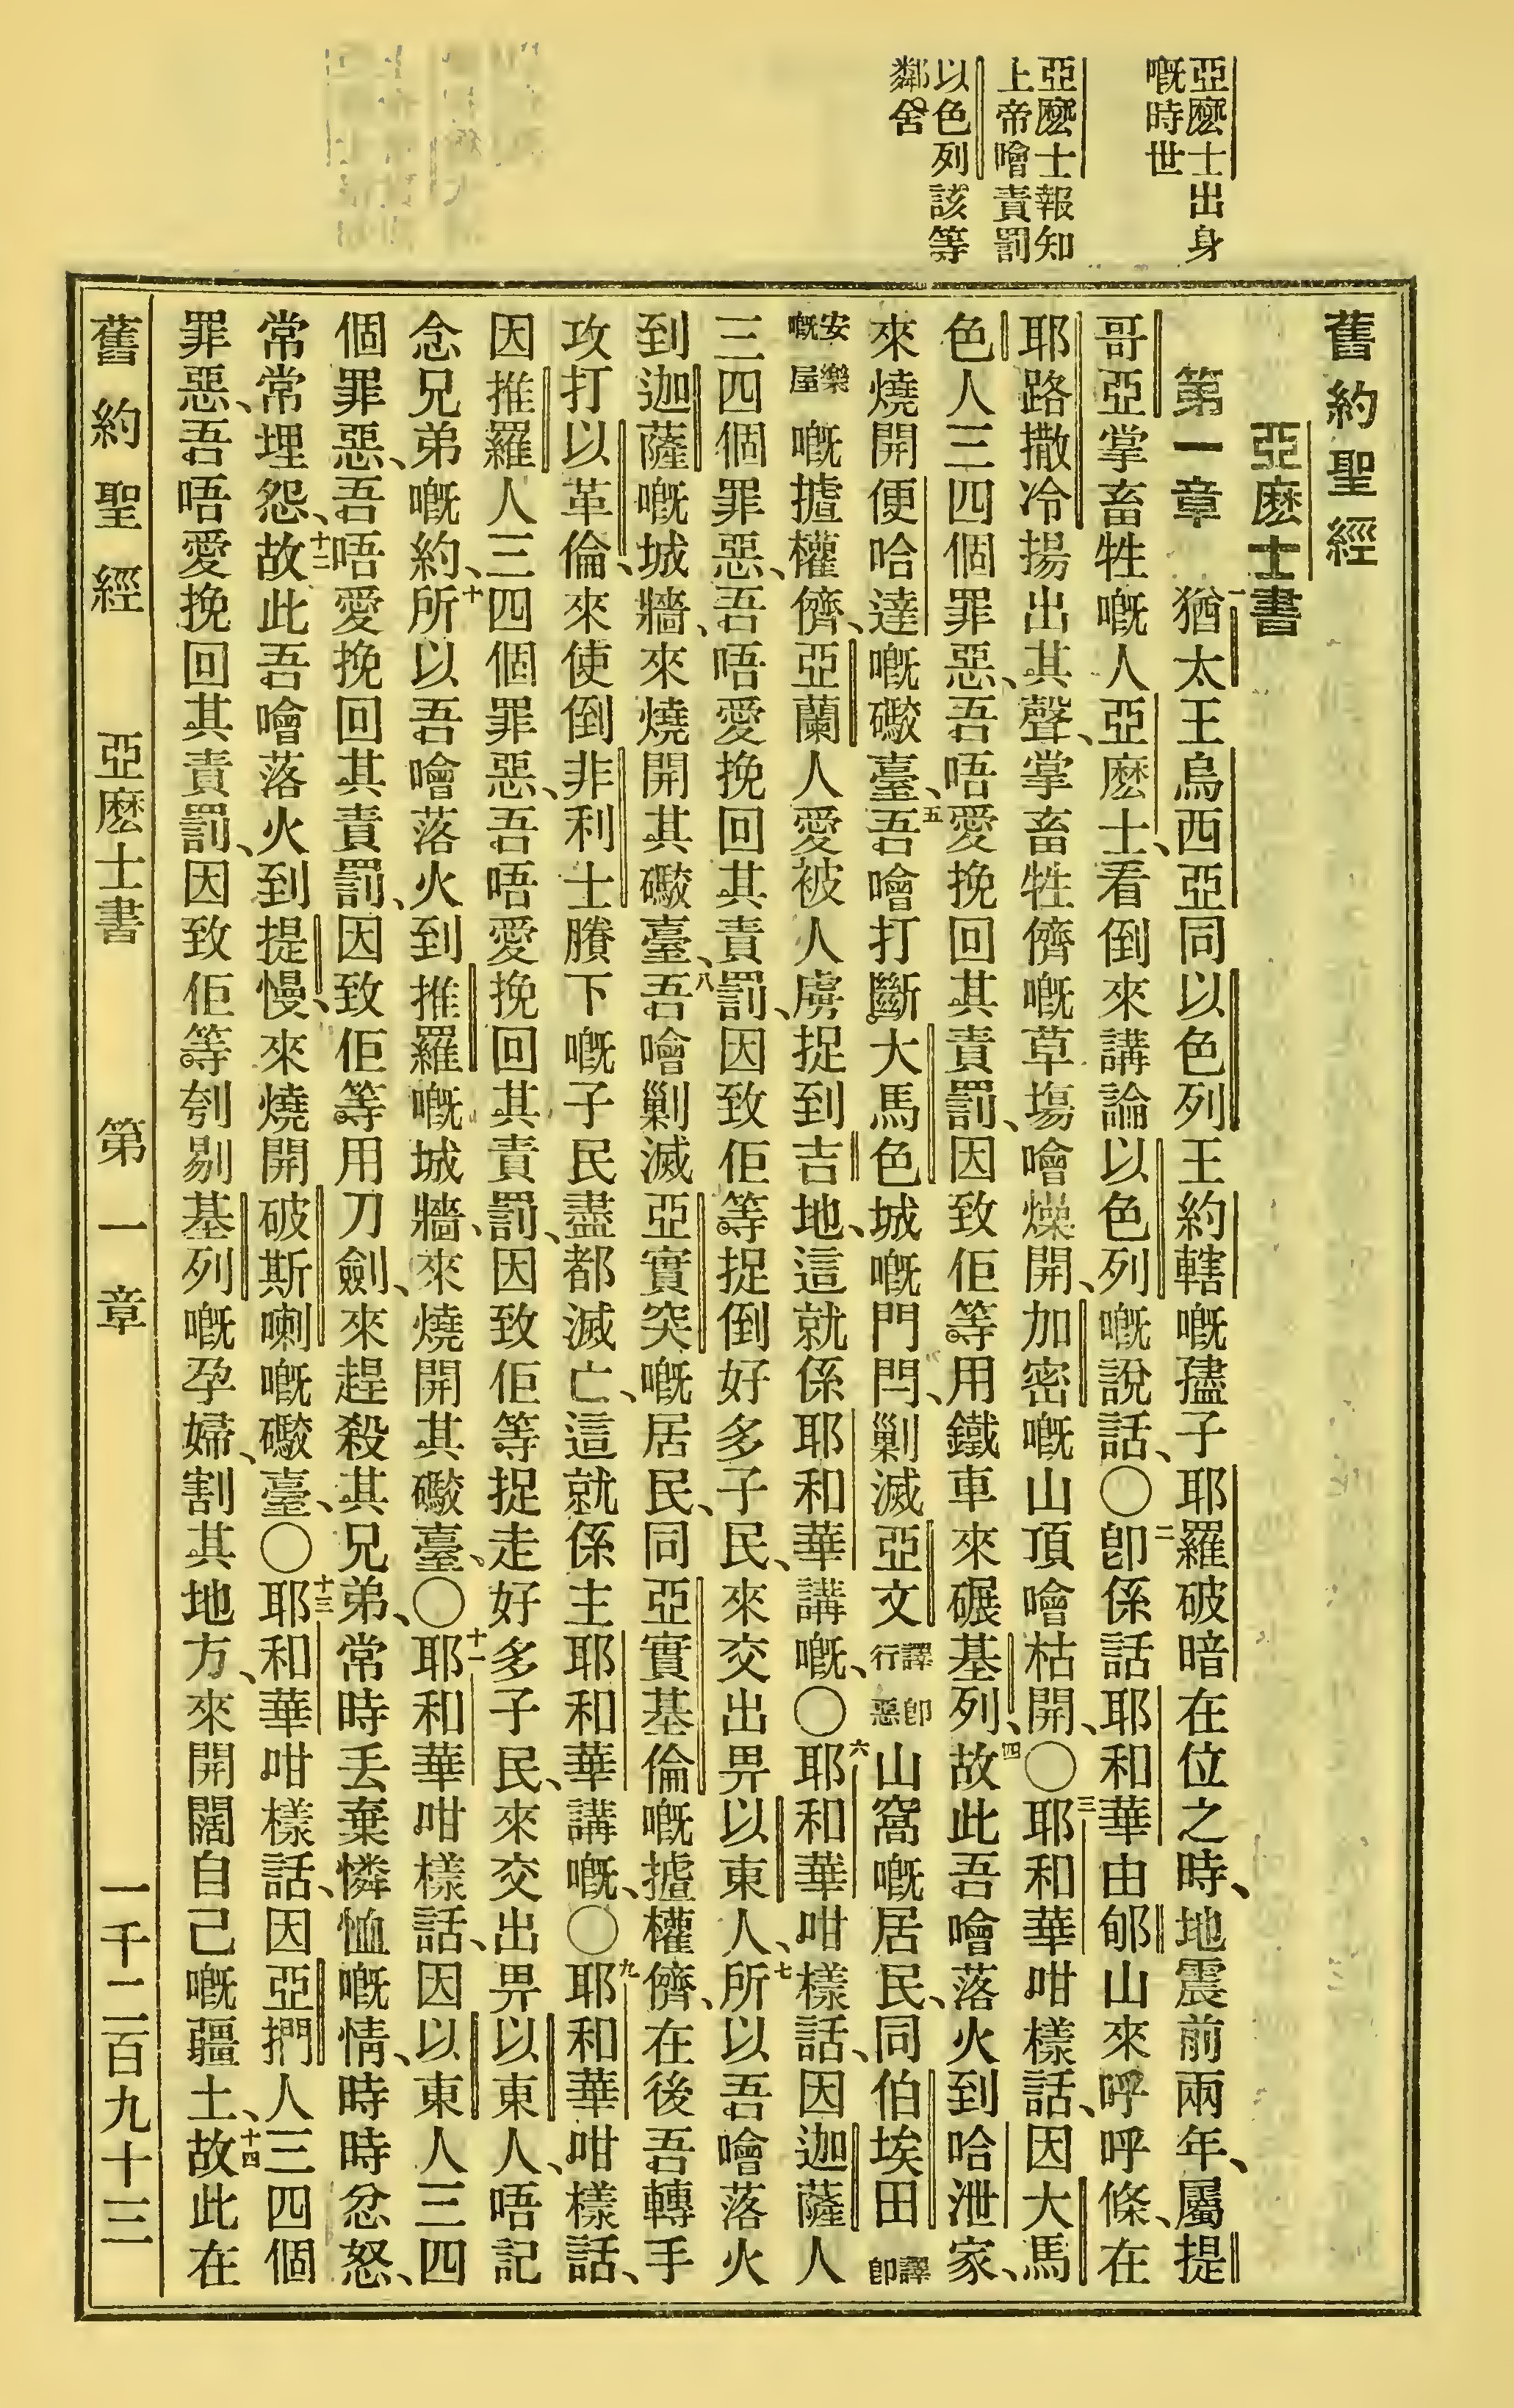 亞麽士出身
嘅時世
亞麽士報知
上帝噲責罰
以色列該等
鄰舍
舊約聖經
亞麽士書
第一章 一猶太王烏西亞同以色列王約轄嘅孻子耶羅破暗在位之時、地震前兩年、屬提
哥亞掌畜牲嘅人亞麽士、看倒來講論以色列嘅說話、〇二卽係話耶和華由郇山來呼呼條、在
耶路撒冷揚出其聲、掌畜牲儕嘅草塲噲燥開、加密嘅山頂噲枯開、〇三耶和華咁樣話、因大馬
色人三四個罪惡、吾唔愛挽回其責罰、因致佢等用鐵車來碾基列、四故此吾噲落火到哈泄家、
來燒開便哈達嘅礮臺、五吾噲打斷大馬色城嘅門閂、剿滅亞文譯卽行惡山窩嘅居民、同伯埃田譯卽
安樂嘅屋嘅揸權儕、亞蘭人愛被人虜捉到吉地、這就係耶和華講嘅、〇六耶和華咁樣話、因迦薩人
三四個罪惡、吾唔愛挽回其責罰、因致佢等捉倒好多子民、來交出畀以東人、七所以吾噲落火
到迦薩嘅城牆、來燒開其礮臺、八吾噲剿滅亞實突嘅居民、同亞實基倫嘅揸權儕、在後吾轉手
攻打以革倫、來使倒非利士賸下嘅子民盡都滅亡、這就係主耶和華講嘅、〇九耶和華咁樣話、
因推羅人三四個罪惡、吾唔愛挽回其責罰、因致佢等捉走好多子民、來交出畀以東人、唔記
念兄弟嘅約、十所以吾噲落火到推羅嘅城牆、來燒開其礮臺、〇十一耶和華咁樣話、因以東人三四
個罪惡、吾唔愛挽回其責罰、因致佢等用刀劍、來趕殺其兄弟、常時丟棄憐恤嘅情、時時忿怒、
常常埋怨、十二故此吾噲落火到提慢、來燒開破斯喇嘅礮臺、〇十三耶和華咁樣話、因亞捫人三四個
罪惡、吾唔愛挽回其責罰、因致佢等刳剔基列嘅孕婦、割其地方、來開闊自己嘅疆土、十四故此在
舊約聖經 亞麽士書 第一章 一千二百九十三